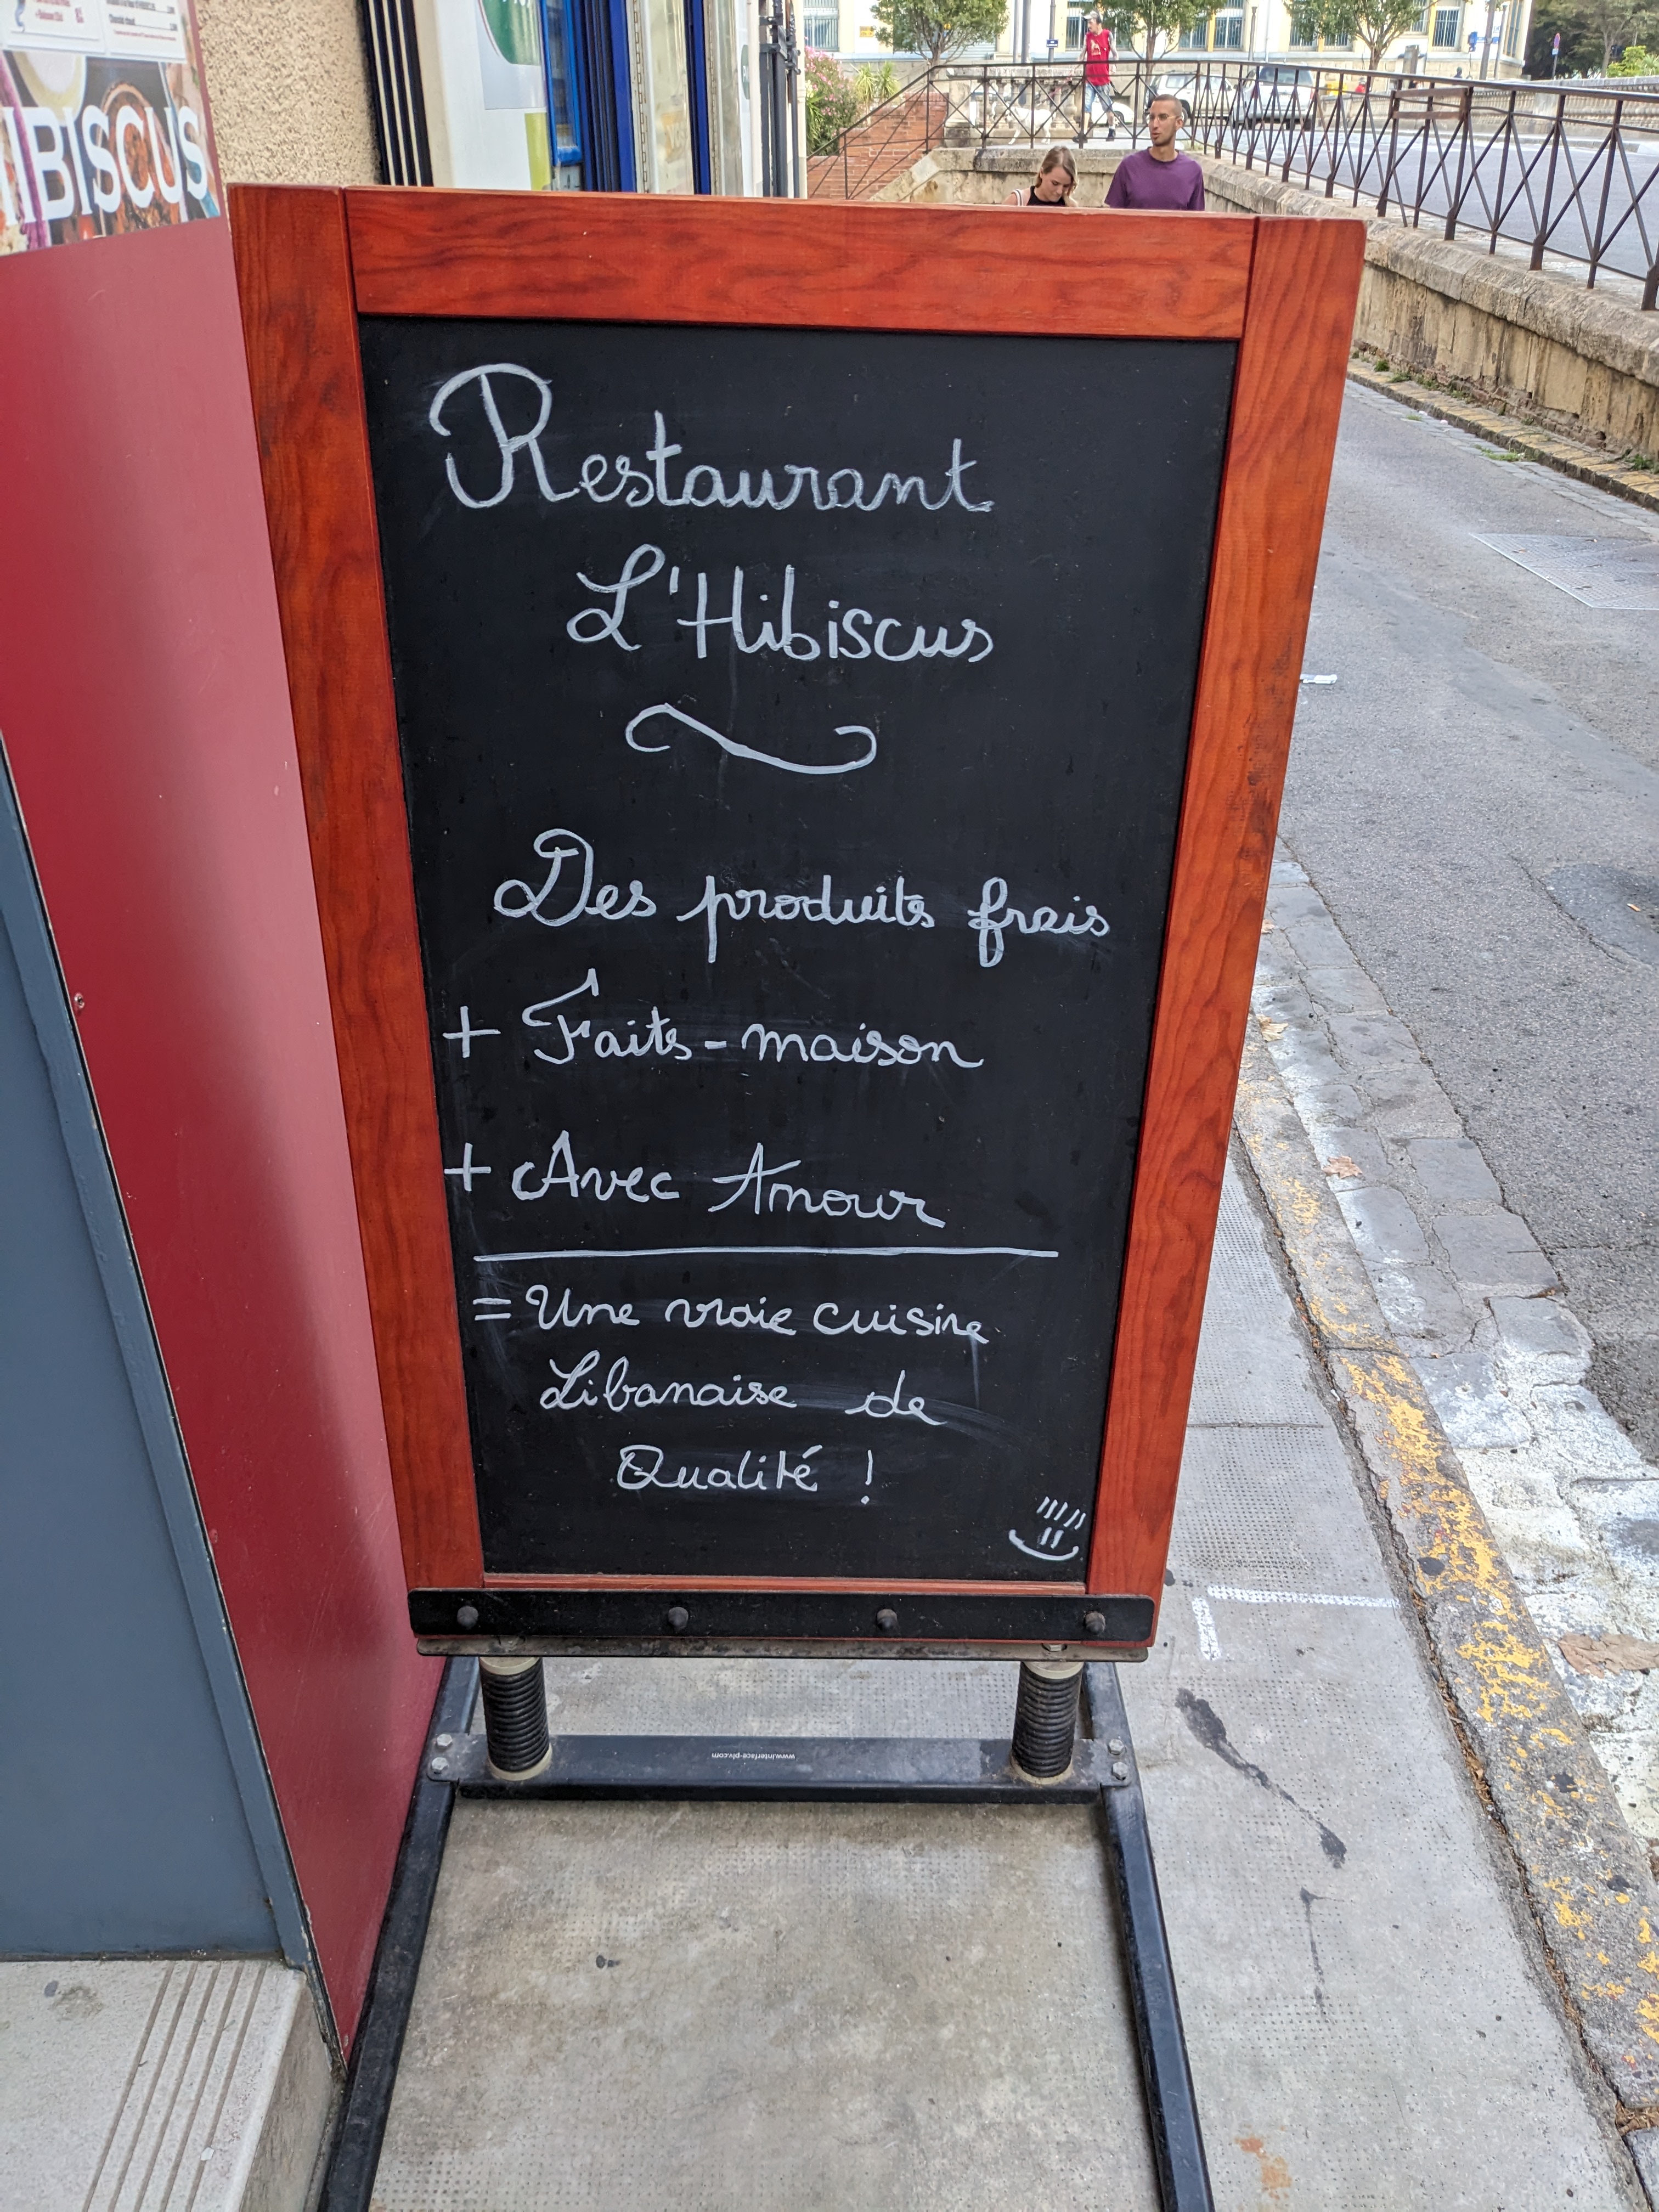 IBISCUS
Restaurant
L'Hibiscus
Des produits frais
+ Faits-maison
+ Avec Amour
= Une vraie cuisine
Libanaise de
Qualité !
www.interface-plv.com